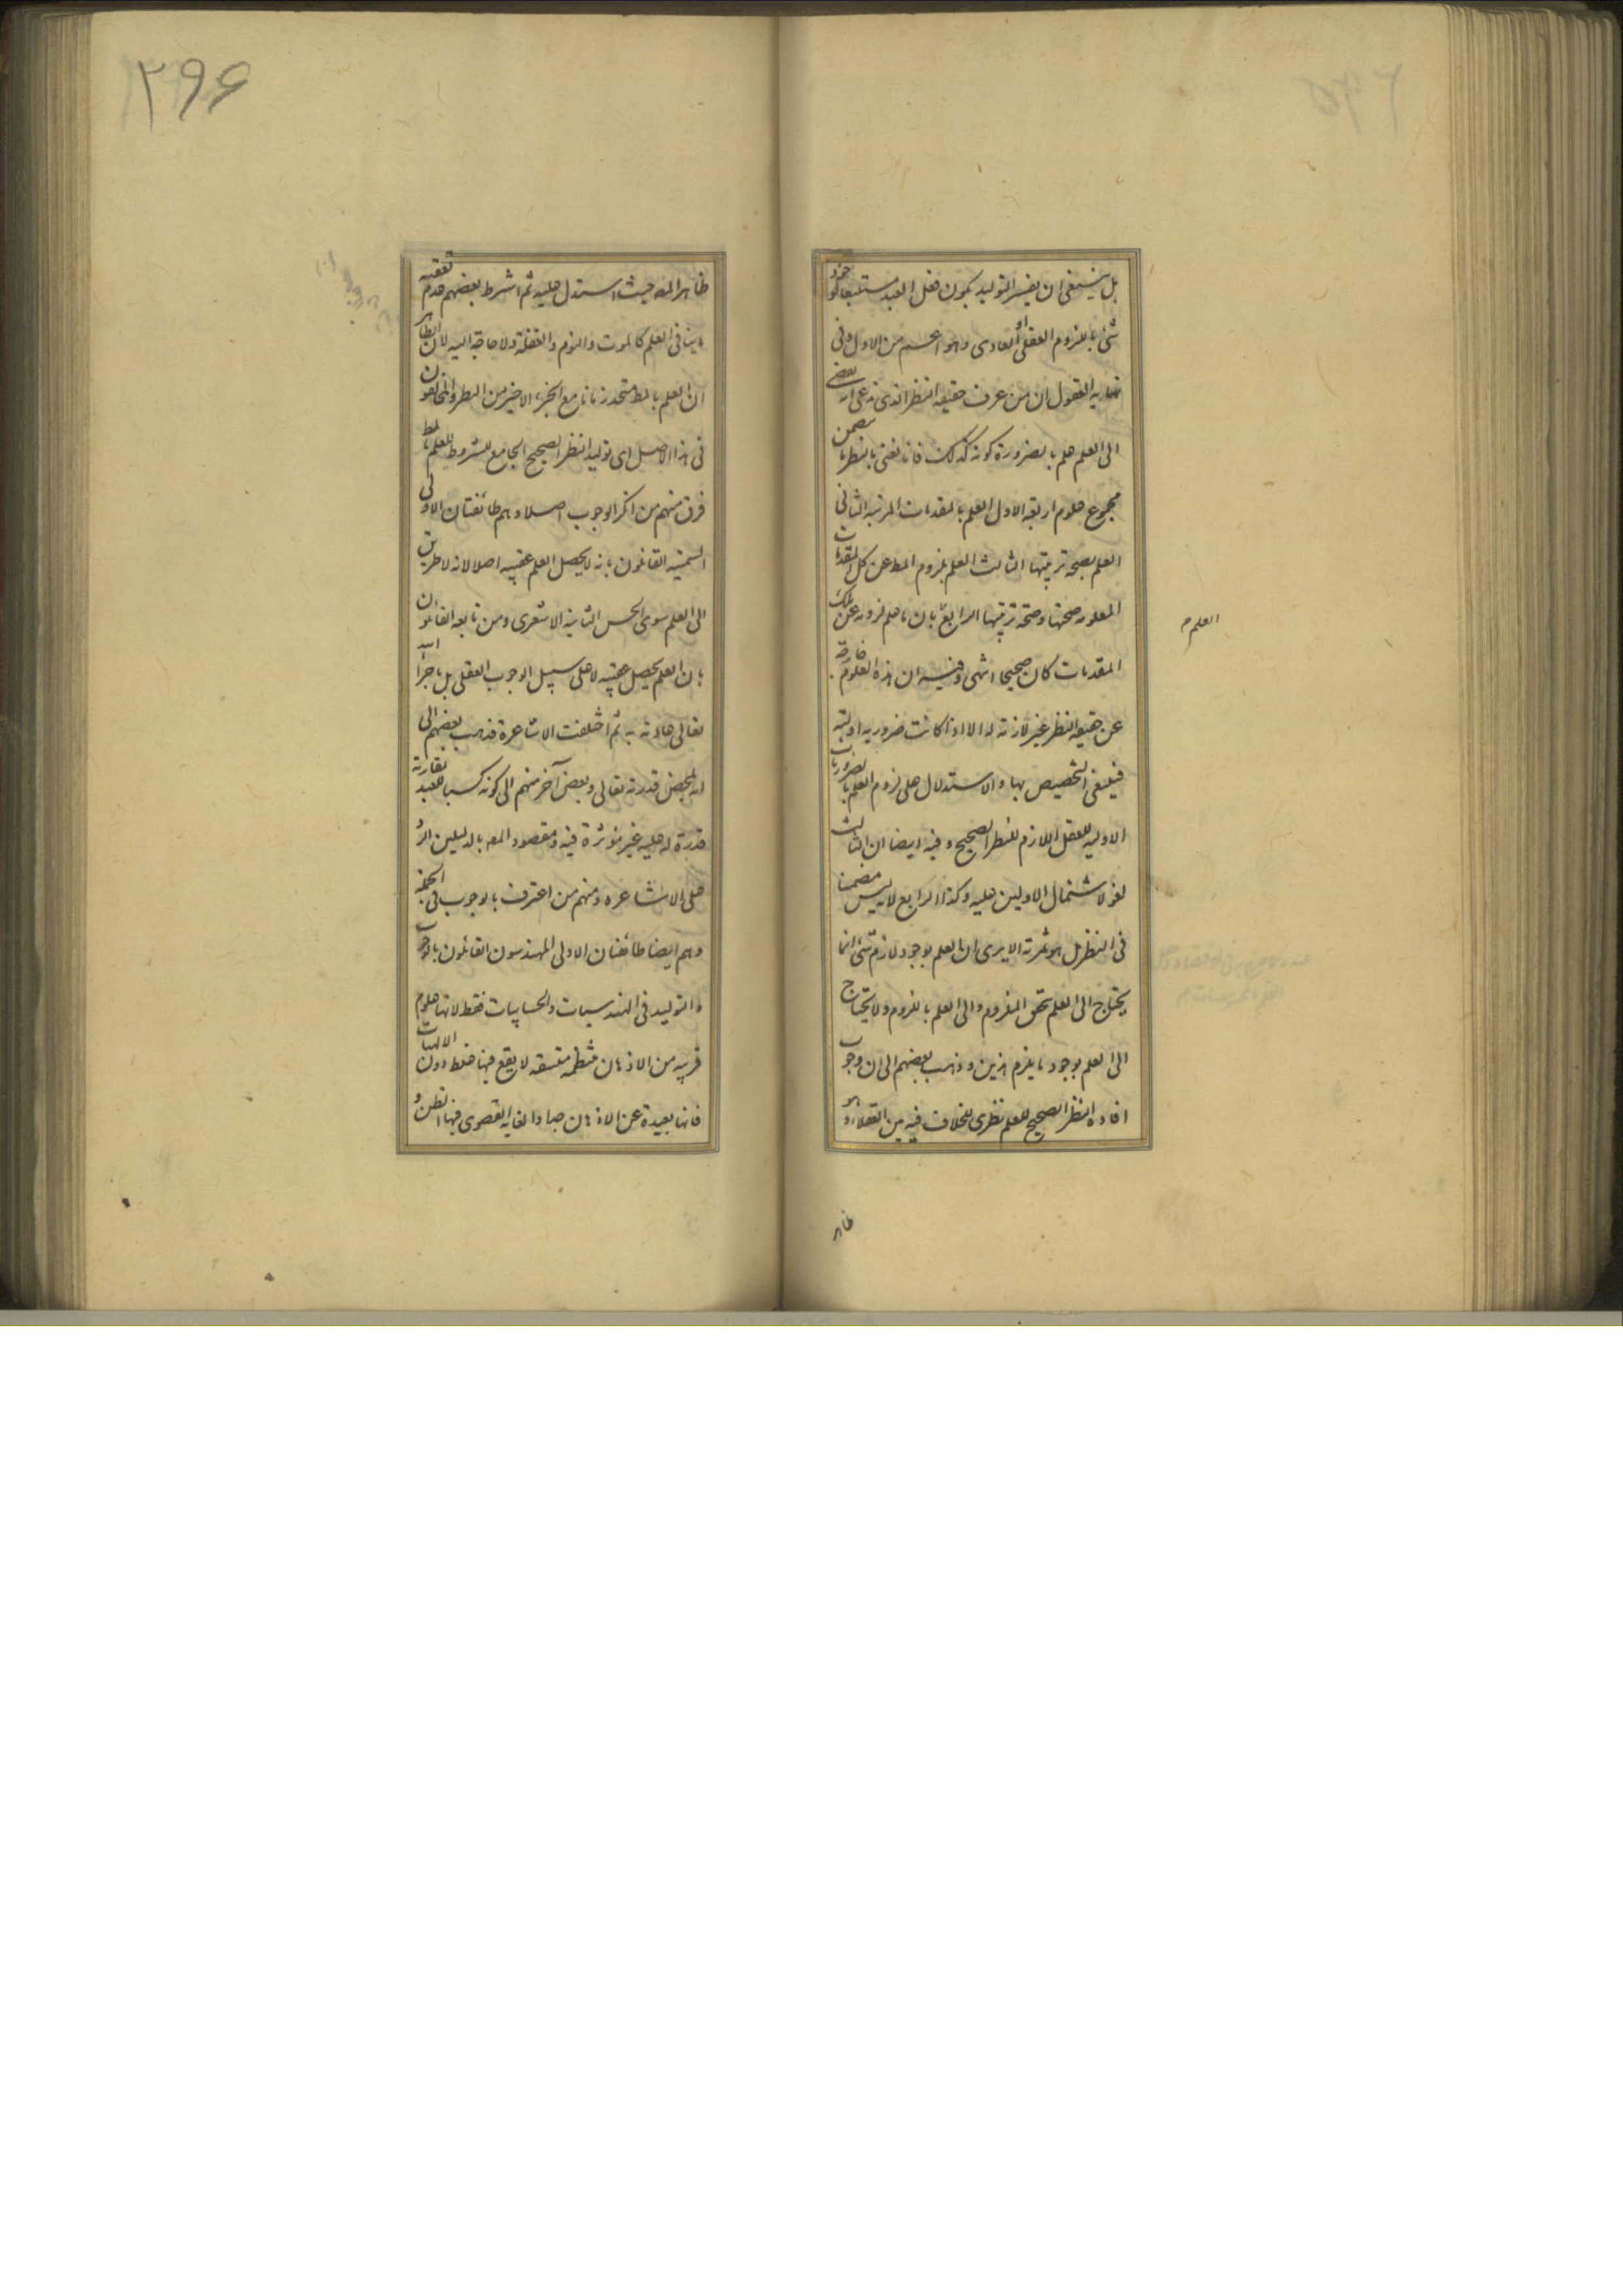 بل ينبغي ان يفسر التوليد بكون فعل العبد مستتبعا لوجود
شئ باللزوم العقلي او العادي وهو اعم من الاول وفي
نهايه العقول ان من عرف حقيقه النظر الذي ندعى انه يفضي
الى العلم علم بالضرورة كونه كذلك فانا نعنى بالنظر ما يتضمن
مجموع علوم اربعه الاول العلم بالمقدمات المرتبه الثاني
العلم بصحه ترتيبها الثالث العلم بلزوم المط عن كل المقدمات
المعلومه صحتها وصحة ترتيبها الرابع بان ما علم لزومه عن تلك
العلم
المقدمات كان صحيحا انتهى وفيه ان هذه العلوم خارجة
عن حقيقه النظر غير لازمة له الا اذا كانت ضروريه اوليه
فينبغي التخصيص بها والاستدلال على لزوم العلم بالضروريات
الاوليه للعقل اللازم للنظر الصحيح وفيه ايضا ان الثالث
لغو لاشتمال الاولين عليه وكذا الرابع لانه ليس مضمنا
في النظر بل هو ثمرته الا يرى ان العلم بوجود لازم شئ انما
يحتاج الى العلم تحقق الملزوم والى العلم باللزوم ولا يحتاج
الى العلم بوجود ما يلزم هذين وذهب بعضهم الى ان وجوب
افاده النظر الصحيح للعلم نظرى للخلاف فيه بين العقلاء وهو
ظاهر
٢٩٦
ظاهر المصه حيث استدل عليه ثم اشرط بعضهم عدم تعقبه
ما ينافي العلم كالموت والنوم والغفلة ولا حاجة اليه لان الظاهر
ان العلم بالمط متحد زمانا مع الجزء الاخير من النظر والمخالفون
في هذا الاصل اى توليد النظر الصحيح الجامع للشروط للعلم بالمط
فرق منهم من انكر الوجوب اصلا وهم طائفتان الاولى
السمنيه القائلون بانه لا يحصل العلم عقيبه اصلا لانه لا طريق
الى العلم سوى الحس الثانية الاشعرى ومن تابعه القائلون
بان العلم يحصل عقيبه لا على سبيل الوجوب العقلي بل باجراء الله
تعالى عادته به ثم اختلفت الاشاعرة فذهب بعضهم الى
انه بمحض قدرته تعالى وبعض آخر منهم الى كونه كسبا للعبد بمقارنة
قدرة له عليه غير مؤثرة فيه ومقصود المصه بالدليلين الرد
على الاشاعره ومنهم من اعترف بالوجوب في الجملة
وهم ايضا طائفتان الاولى المهندسون القائلون بالوجوب
والتوليد في الهندسيات والحسابيات فقط لانها علوم
قريبه من الاذهان منتظمه متسقه لا يقع فيها غلط دون الالهيات
فانها بعيدة عن الاذهان جدا والغايه القصوى فيها الظن و